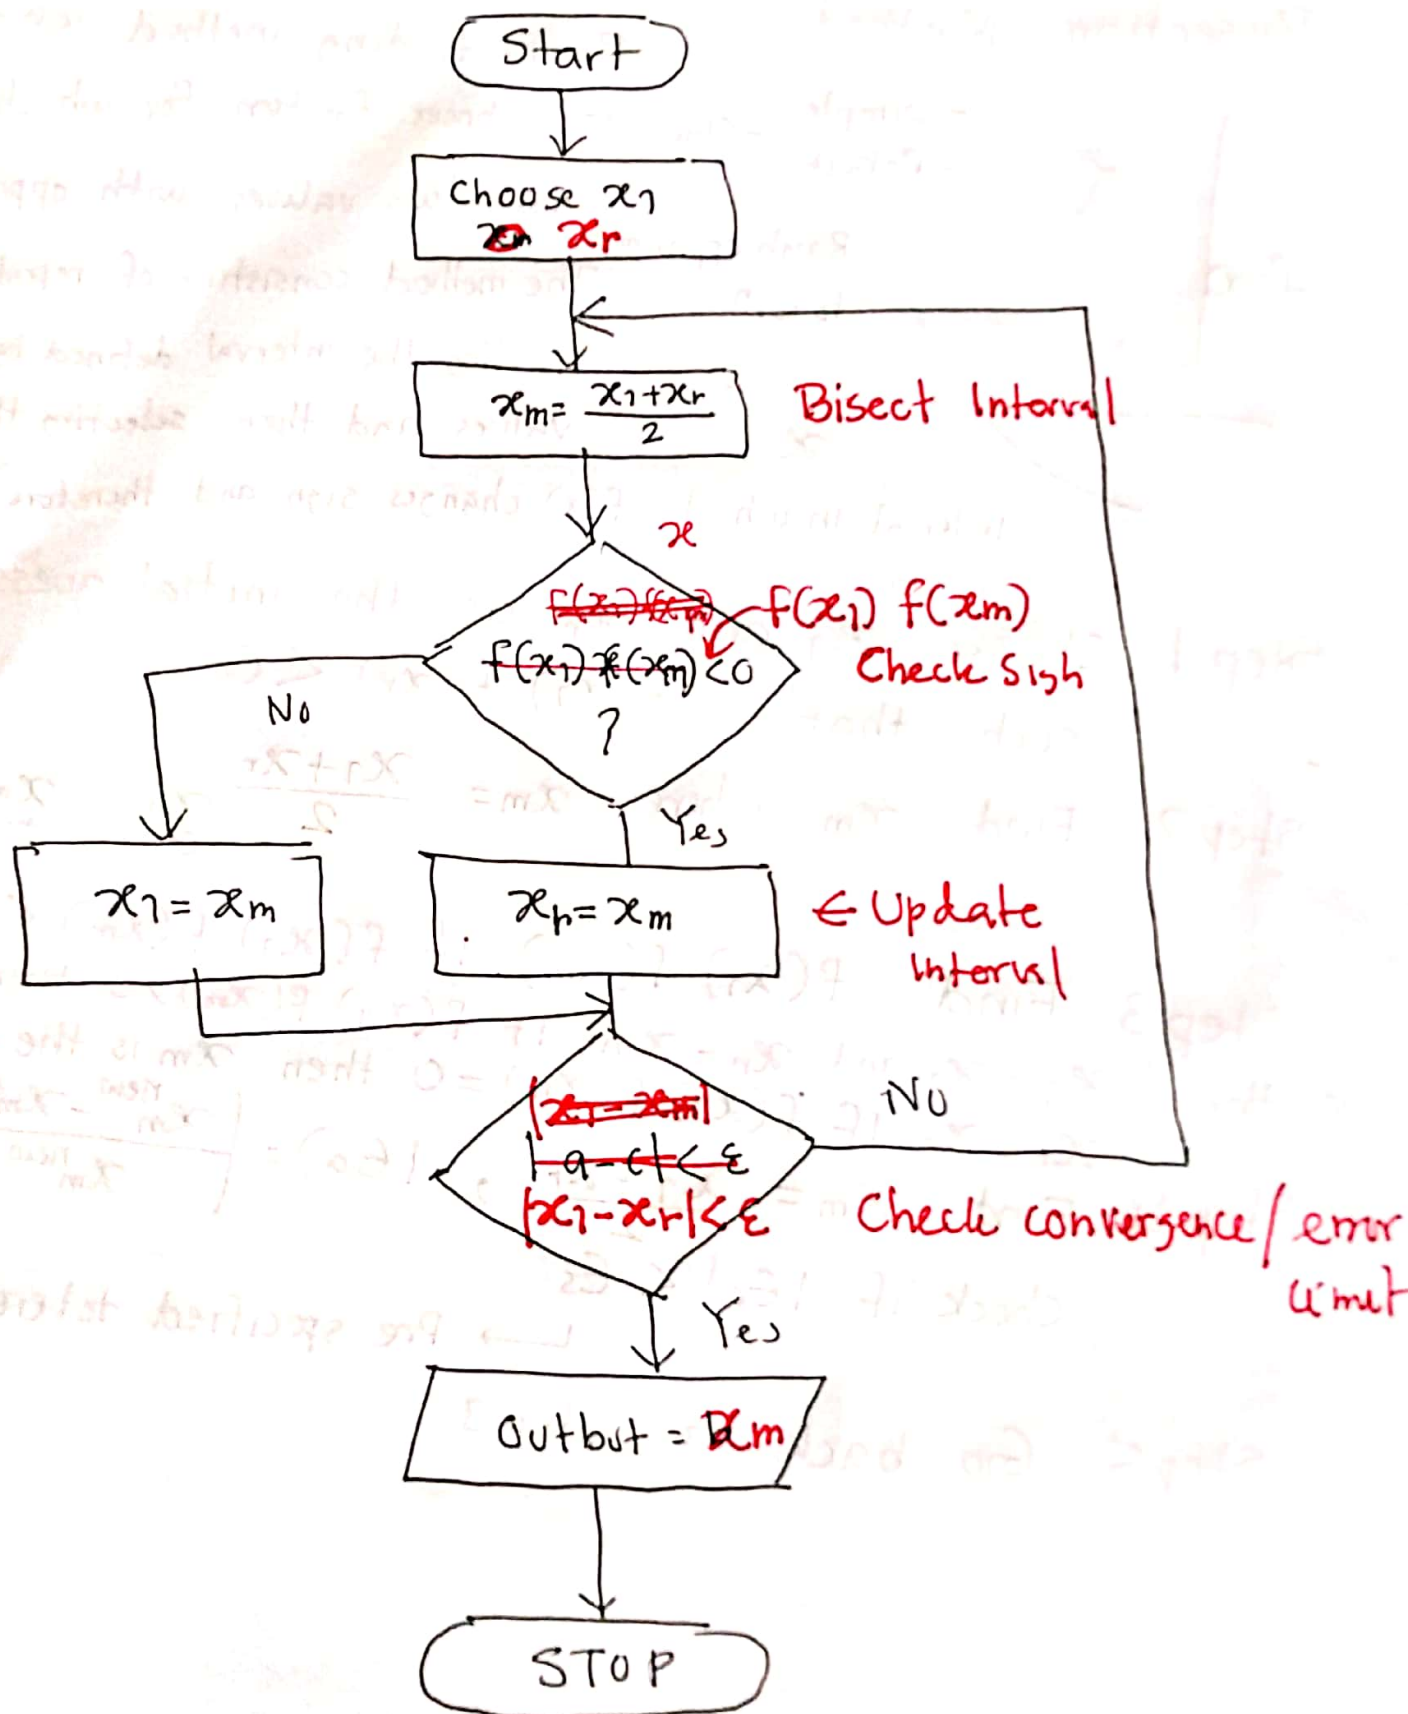 Start
Choose x1
xr
xm = x1+xr
2
Bisect Interval
x
f(x1) f(xm)
f(x1) f(xm) <0
?
f(x1) f(xm)
Check Sigh
No
Yes
x1 = xm
xr = xm
← Update
Interval
|x1 - xm|
|a - c| < ε
|x1 - xr| < ε
No
Check convergence / error
limit
Yes
Outbut = xm
STOP